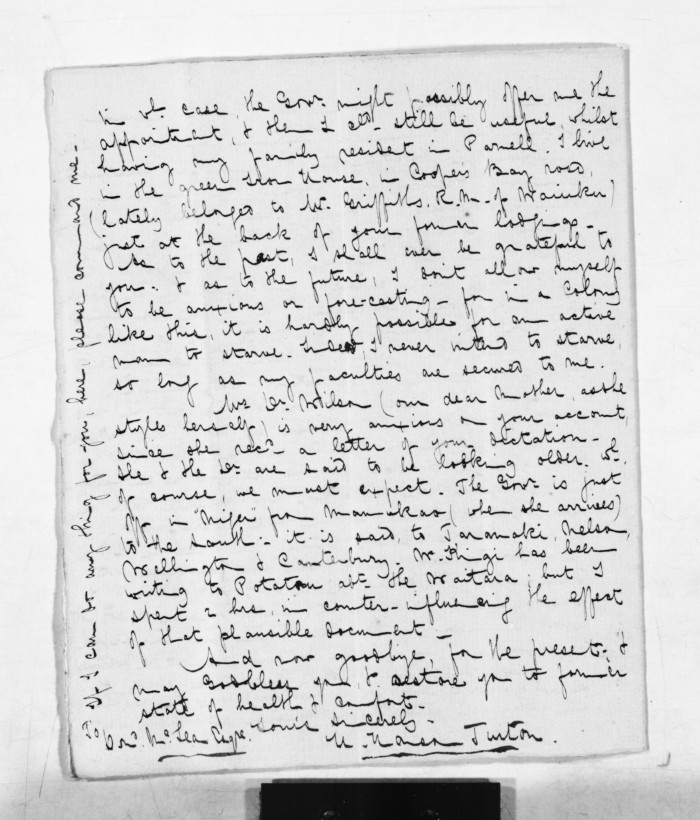 in wh. case, the Govr. might possibly offer me the
appointment, & then I cld. still be useful, whilst
having my family resident in Parnell. I live
in the green Iron House, in Cooper's Bay road,
(lately belonged to Mr. Griffiths, R.M. of Waiuku)
just at the back of your former lodgings.
As to the past, I shall ever be grateful to
you: & as to the future, I don't allow myself
to be anxious or fore-casting - for in a Colony
like this, it is hardly possible for an active
man to starve. Indeed, I never intend to starve,
so long as my faculties are secured to me.
Mrs. Dr. Wilson (our dear Mother, as she
styles herself) is very anxious on your account,
since she recd. a letter of your dictation -
She & the Dr. are said to be looking older. wh.
of course, we must expect. The Govr. is just
off in "Niger" from Manukao (when she arrives)
to the South - it is said, to Taranaki, Nelson,
Wellington & Canterbury. W. Kingi has been
writing to Potatau abt. the Waitara; but I
spent 2 hrs. in counter-influencing the effect
of that plausible document -
And now goodbye, for the present - &
may God bless you, & restore you to former
state of health & comfort.
Yours sincerely -
H. Hanson Turton.
To Dond. McLean Esqre.
If I can do any thing for you, here, please command me -